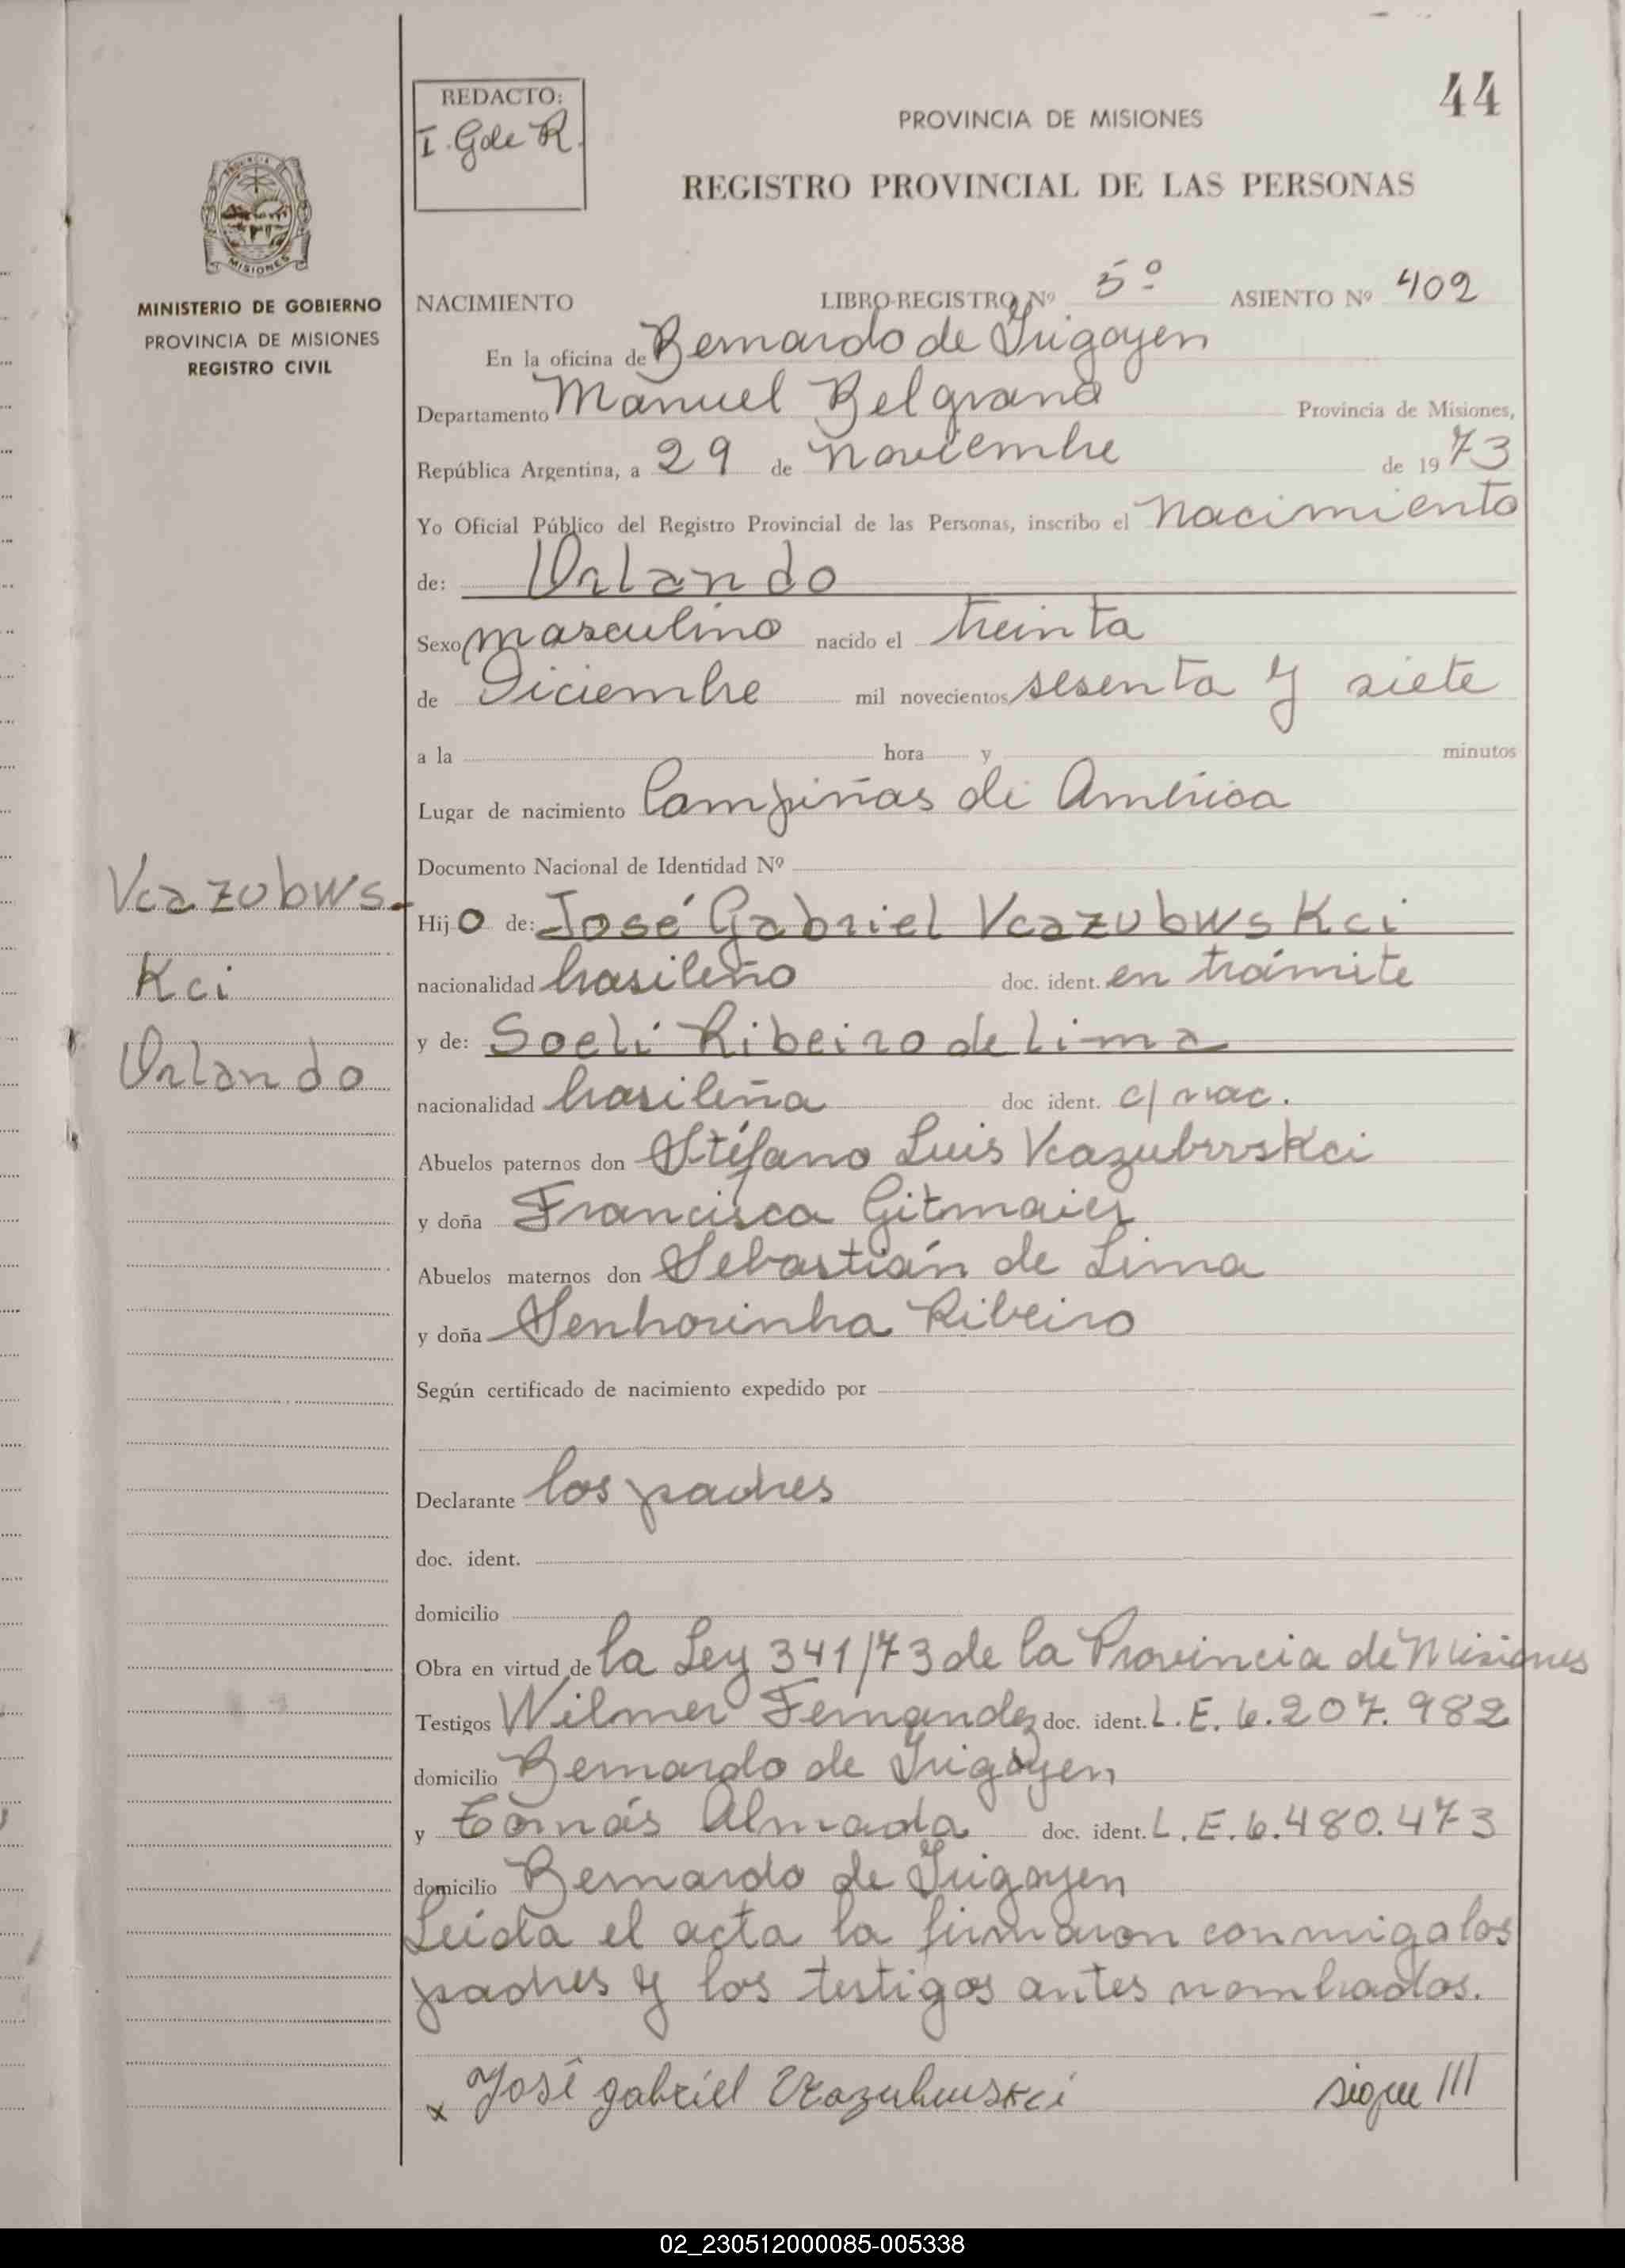 44
REDACTO:
I. G de R.
PROVINCIA DE MISIONES
REGISTRO PROVINCIAL DE LAS PERSONAS
PROVINCIA
MISIONES
MINISTERIO DE GOBIERNO
PROVINCIA DE MISIONES
REGISTRO CIVIL
NACIMIENTO LIBRO-REGISTRO Nº 5º ASIENTO Nº 402
En la oficina de Bernardo de Irigoyen
Departamento Manuel Belgrano Provincia de Misiones,
República Argentina, a 29 de noviembre de 1973
Yo Oficial Público del Registro Provincial de las Personas, inscribo el nacimiento
de: Orlando
Sexo masculino nacido el treinta
de Diciembre mil novecientos sesenta y siete
a la hora y minutos
Lugar de nacimiento Campiñas de América
Documento Nacional de Identidad Nº
Vcazubws-
Kci
Orlando
Hijo de: José Gabriel VcazubwsKci
nacionalidad brasileño doc. ident. en trámite
y de: Soeli Ribeiro de Lima
nacionalidad brasileña doc ident. c/ nac.
Abuelos paternos don Stéfano Luis VcazubwsKci
y doña Francisca Gitmaier
Abuelos maternos don Sebastián de Lima
y doña Senhorinha Ribeiro
Según certificado de nacimiento expedido por
Declarante los padres
doc. ident.
domicilio
Obra en virtud de la Ley 341/73 de la Provincia de Misiones
Testigos Wilmer Fernandez doc. ident. L.E. 6.207.982
domicilio Bernardo de Irigoyen
y Tomás Almada doc. ident. L.E. 6.480.473
domicilio Bernardo de Irigoyen
Leída el acta la firmaron conmigo los
padres y los testigos antes nombrados.
x José gabriel Vcazubwskci sigue ///
02_230512000085-005338